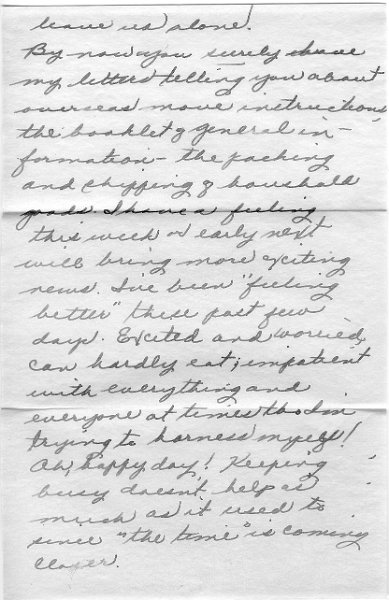 leave us alone.
By now you surely have
my letters telling you about
overseas move instructions,
the booklet of general in-
formation - the packing
and shipping of houshold
goods. I have a feeling
this week or early next
will bring more exciting
news. I've been "feeling
better" these past few
days. Excited and worried,
can hardly eat; impatient
with everything and
everyone at times tho I'm
trying to harness myself!
Oh, happy day! Keeping
busy doesn't help as
much as it used to
since "the time" is coming
closer.